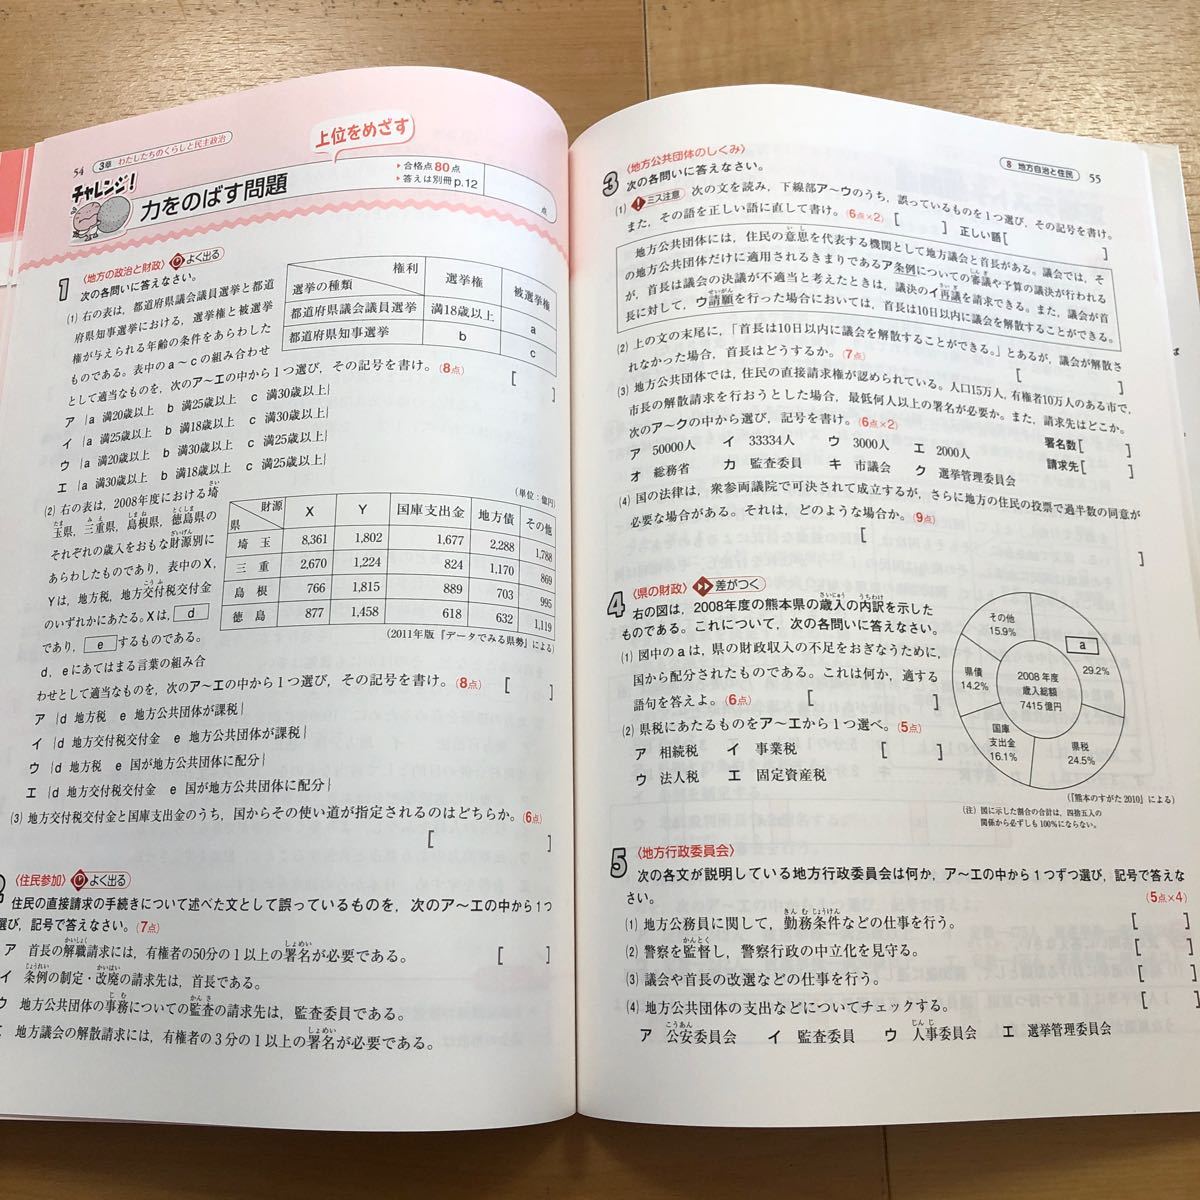 54 3章 わたしたちのくらしと民主政治
上位をめざす
チャレンジ!
力をのばす問題
▶合格点80点
▶答えは別冊p.12
点
1 〈地方の政治と財政〉 よく出る
次の各問いに答えなさい。
(1) 右の表は，都道府県議会議員選挙と都道
府県知事選挙における，選挙権と被選挙
権が与えられる年齢の条件をあらわした
ものである。表中のa～cの組み合わせ
として適当なものを，次のア～エの中から1つ選び，その記号を書け。(8点) [ ]
権利 選挙の種類 選挙権 被選挙権
都道府県議会議員選挙 満18歳以上 a
都道府県知事選挙 b c
ア {a 満20歳以上 b 満25歳以上 c 満30歳以上}
イ {a 満25歳以上 b 満18歳以上 c 満30歳以上}
ウ {a 満20歳以上 b 満30歳以上 c 満25歳以上}
エ {a 満30歳以上 b 満18歳以上 c 満25歳以上}
(2) 右の表は，2008年度における埼
玉県，三重県，島根県，徳島県の
それぞれの歳入をおもな財源別に
あらわしたものであり，表中のX，
Yは，地方税，地方交付税交付金
のいずれかにあたる。Xは， d
であり， e するものである。
d，eにあてはまる言葉の組み合
わせとして適当なものを，次のア～エの中から1つ選び，その記号を書け。(8点) [ ]
(単位：億円)
財源 県 X Y 国庫支出金 地方債 その他
埼玉 8,361 1,802 1,677 2,288 1,788
三重 2,670 1,224 824 1,170 869
島根 766 1,815 889 703 995
徳島 877 1,458 618 632 1,119
(2011年版『データでみる県勢』による)
ア {d 地方税 e 地方公共団体が課税}
イ {d 地方交付税交付金 e 地方公共団体が課税}
ウ {d 地方税 e 国が地方公共団体に配分}
エ {d 地方交付税交付金 e 国が地方公共団体に配分}
(3) 地方交付税交付金と国庫支出金のうち，国からその使い道が指定されるのはどちらか。(6点)
[ ]
〈住民参加〉 よく出る
住民の直接請求の手続きについて述べた文として誤っているものを，次のア～エの中から1つ
選び，記号で答えなさい。(7点)
ア 首長の解職請求には，有権者の50分の1以上の署名が必要である。 [ ]
イ 条例の制定・改廃の請求先は，首長である。
ウ 地方公共団体の事務についての監査の請求先は，監査委員である。
エ 地方議会の解散請求には，有権者の3分の1以上の署名が必要である。
8 地方自治と住民 55
3 〈地方公共団体のしくみ〉
次の各問いに答えなさい。
(1) ミス注意 次の文を読み，下線部ア～ウのうち，誤っているものを1つ選び，その記号を書け。
また，その語を正しい語に直して書け。(6点×2) [ ] 正しい語[ ]
地方公共団体には，住民の意思を代表する機関として地方議会と首長がある。議会では，そ
の地方公共団体だけに適用されるきまりであるア条例についての審議や予算の議決が行われる
が，首長は議会の決議が不適当と考えたときは，議決のイ再議を請求できる。また，議会が首
長に対して，ウ請願を行った場合においては，首長は10日以内に議会を解散することができる。
(2) 上の文の末尾に，「首長は10日以内に議会を解散することができる。」とあるが，議会が解散さ
れなかった場合，首長はどうするか。(7点) [ ]
(3) 地方公共団体では，住民の直接請求権が認められている。人口15万人，有権者10万人のある市で，
市長の解散請求を行おうとした場合，最低何人以上の署名が必要か。また，請求先はどこか。
次のア～クの中から選び，記号を書け。(6点×2) 署名数[ ]
ア 50000人 イ 33334人 ウ 3000人 エ 2000人 請求先[ ]
オ 総務省 カ 監査委員 キ 市議会 ク 選挙管理委員会
(4) 国の法律は，衆参両議院で可決されて成立するが，さらに地方の住民の投票で過半数の同意が
必要な場合がある。それは，どのような場合か。(9点)
[ ]
4 〈県の財政〉 差がつく
右の図は，2008年度の熊本県の歳入の内訳を示した
ものである。これについて，次の各問いに答えなさい。
(1) 図中のaは，県の財政収入の不足をおぎなうために，
国から配分されたものである。これは何か，適する
語句を答えよ。(6点) [ ]
(2) 県税にあたるものをア～エから1つ選べ。(5点)
ア 相続税 イ 事業税 [ ]
ウ 法人税 エ 固定資産税
その他 15.9%
a 29.2%
県債 14.2%
2008年度 歳入総額 7415億円
国庫支出金 16.1%
県税 24.5%
(『熊本のすがた2010』による)
(注) 図に示した割合の合計は，四捨五入の
関係から必ずしも100％にならない。
5 〈地方行政委員会〉
次の各文が説明している地方行政委員会は何か，ア～エの中から1つずつ選び，記号で答えな
さい。 (5点×4)
(1) 地方公務員に関して，勤務条件などの仕事を行う。 [ ]
(2) 警察を監督し，警察行政の中立化を見守る。 [ ]
(3) 議会や首長の改選などの仕事を行う。 [ ]
(4) 地方公共団体の支出などについてチェックする。 [ ]
ア 公安委員会 イ 監査委員 ウ 人事委員会 エ 選挙管理委員会